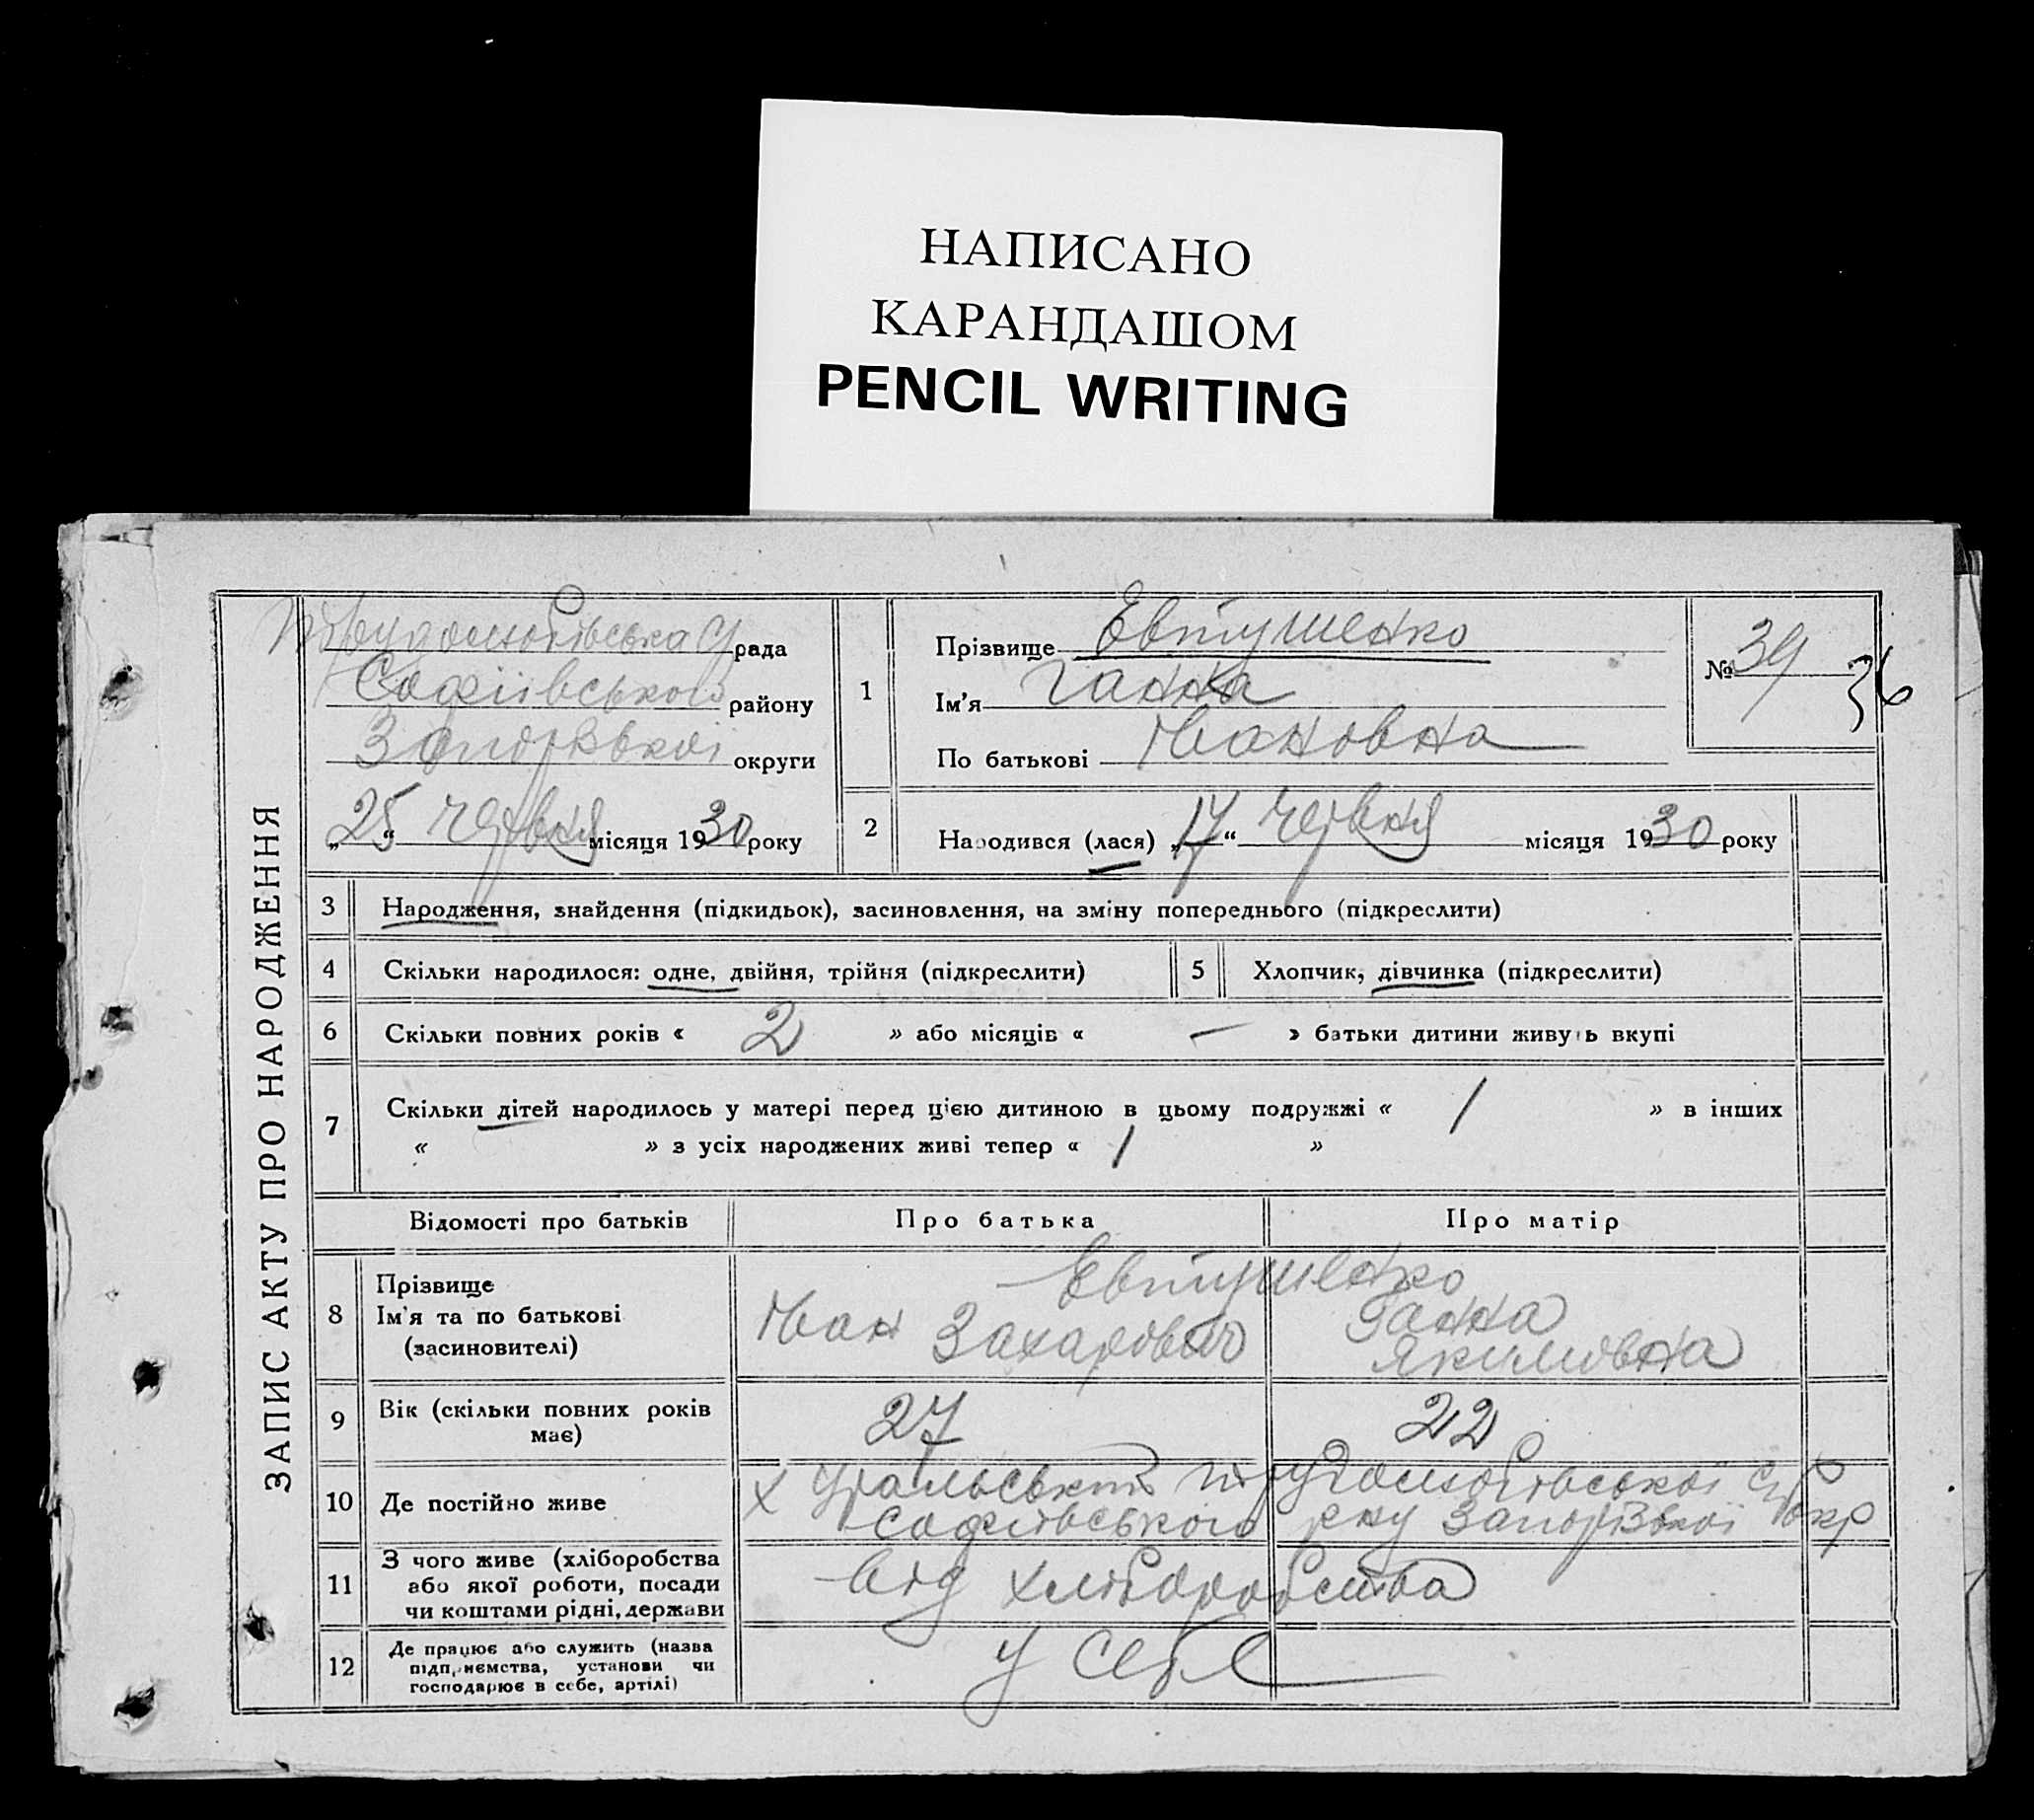 НАПИСАНО
КАРАНДАШОМ
PENCIL WRITING
ЗАПИС АКТУ ПРО НАРОДЖЕННЯ
Трудолюбівська С/рада
Софіївського району
Запорізької округи
„25“ червня місяця 1930 року
1
Прізвище Евтушенко
Ім'я Ганна
По батькові Ивановна
№ 39
36
2 Народився (лася) „17“ червня місяця 1930 року
3 Народження, знайдення (підкидьок), засиновлення, на зміну попереднього (підкреслити)
4 Скільки народилося: одне, двійня, трійня (підкреслити) 5 Хлопчик, дівчинка (підкреслити)
6 Скільки повних років « 2 » або місяців « — » батьки дитини живуть вкупі
7 Скільки дітей народилось у матері перед цією дитиною в цьому подружжі « 1 » в інших
« » з усіх народжених живі тепер « 1 »
Відомості про батьків Про батька Про матір
8 Прізвище
Ім'я та по батькові
(засиновителі)
Евтушенко
Иван Захарович
Ганна
Якимовна
9 Вік (скільки повних років
має)
27 22
10 Де постійно живе
х Уральський Трудолюбівської с/р
Софіївського р-ну Запорізької окр
11 З чого живе (хліборобства
або якої роботи, посади
чи коштами рідні, держави
від хліборобства
12 Де працює або служить (назва
підприємства, установи чи
господарює в себе, артілі)
у себе